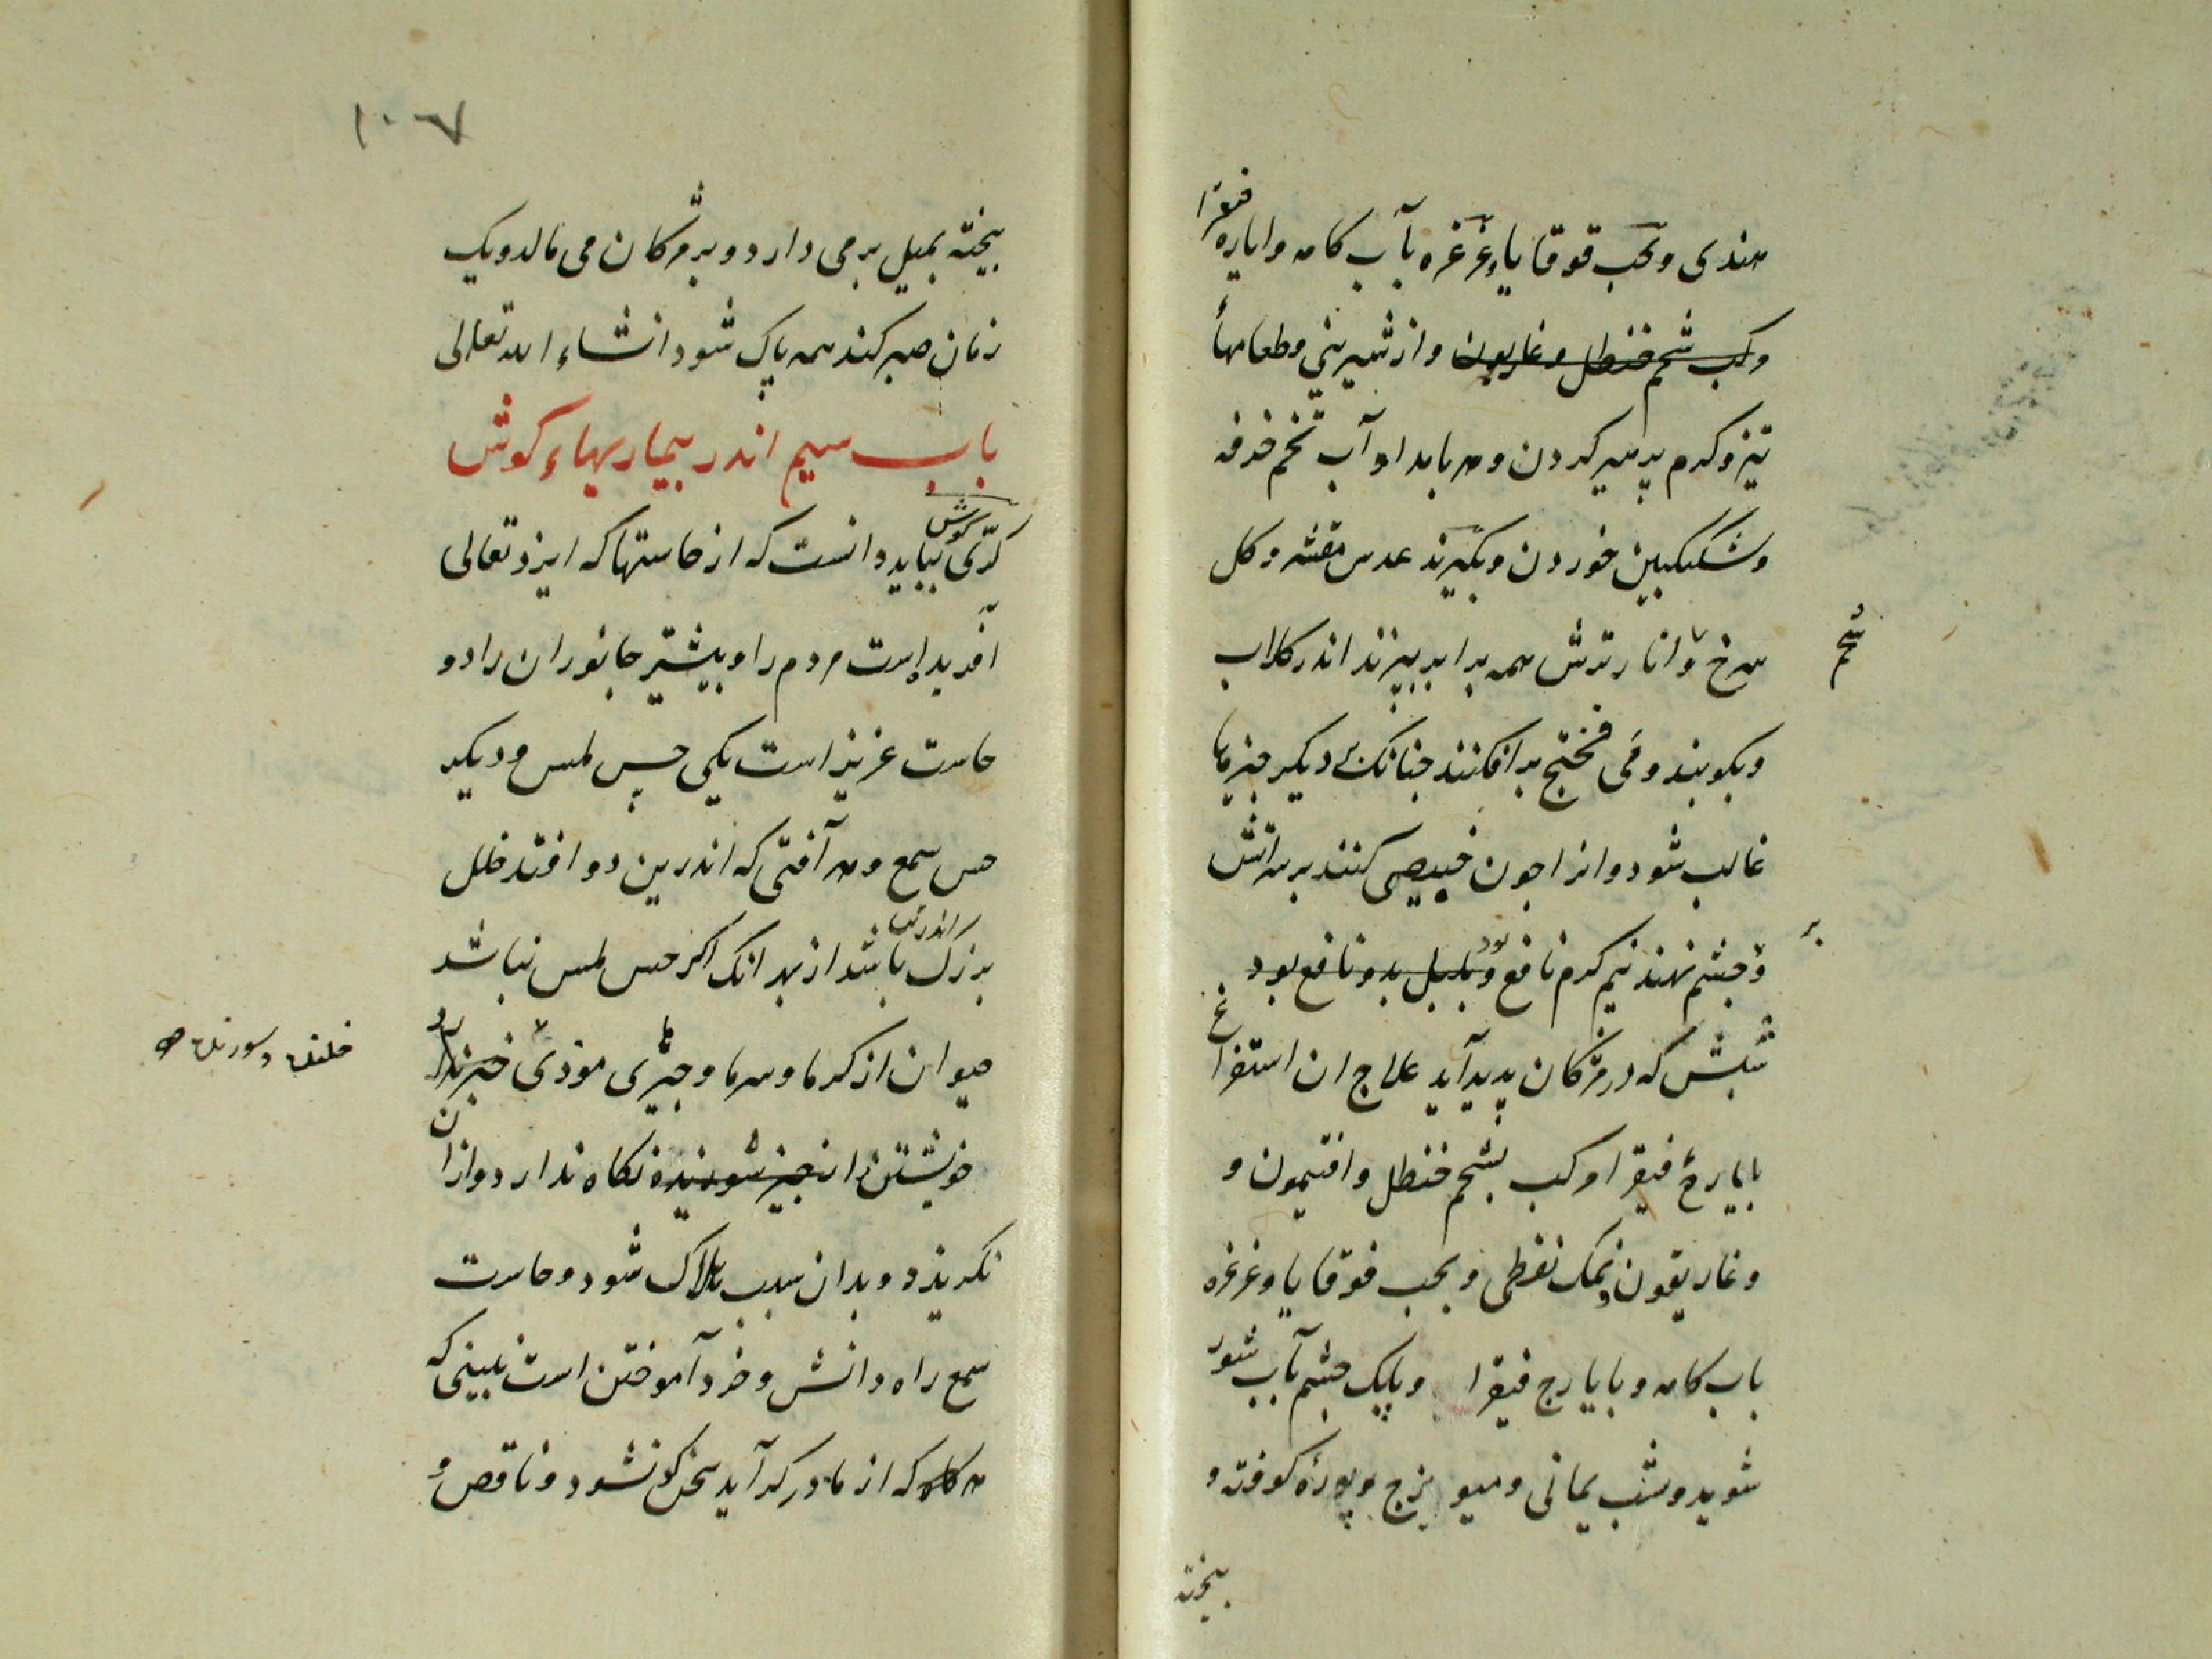 هندی و بحب قوقایا و غرغره بآب کامه و ایاره فیقرا
و کب شحم حنظل و غاریون و از شیرینی و طعامهأ
تیز و کرم پرهیز کردن و هر بامداد آب تخم خرفه
و سکنکبین خوردن و بکیرند عدس مقشر و کل
سرخ و انار ترش همه برابر بپزند اندر کلاب
شحم
و بکوبند و می فختج برافکنند جنانک دیکر جیزها
غالب شود و انرا جون خبیصی کنند بر سر اتش
و بجشم نهند نیم کرم نافع بود و بلبل بدو نافع بود
بر
شبش که در مژکان پدید آید علاج ان استفراغ
بایارهٔ فیقرا و کب بشحم حنظل و افتیمون و
و غاریقون و نمک نفطی و بحب قوقایا و غرغره
باب کامه و بایارج فیقرا و پلک جشم بآب شور
شوید و شب یمانی و میویزج و بوره کوفته و
بیخته
۱۰۳۷
بیخته بمیل برمی دارد و بر مژکان می مالد و یک
زمان صبر کند همه پاک شود انشاء الله تعالی
باب سیم اندر بیماریهاء کوش
کرّی کوش بباید دانست که از حاستها که ایزد تعالی
آفریده است مردم را و بیشتر جانوران را دو
حاست عزیز است یکی حس لمس و دیکر
حس سمع و هر آفتی که اندرین دو افتد خلل
بزرک باشد از بهر انک اکر حس لمس نباشد
حیوان از کرما و سرما و جیزهای موذی خبر ندارد
خویشتن را از جیز سوزنده نکاه ندارد و ازان
نکریزد و بدان سبب هلاک شود و حاست
سمع راه دانش و خرد آموختن است نبینی که
هر که که از مادر کر آید سخن کو نشود و ناقص و